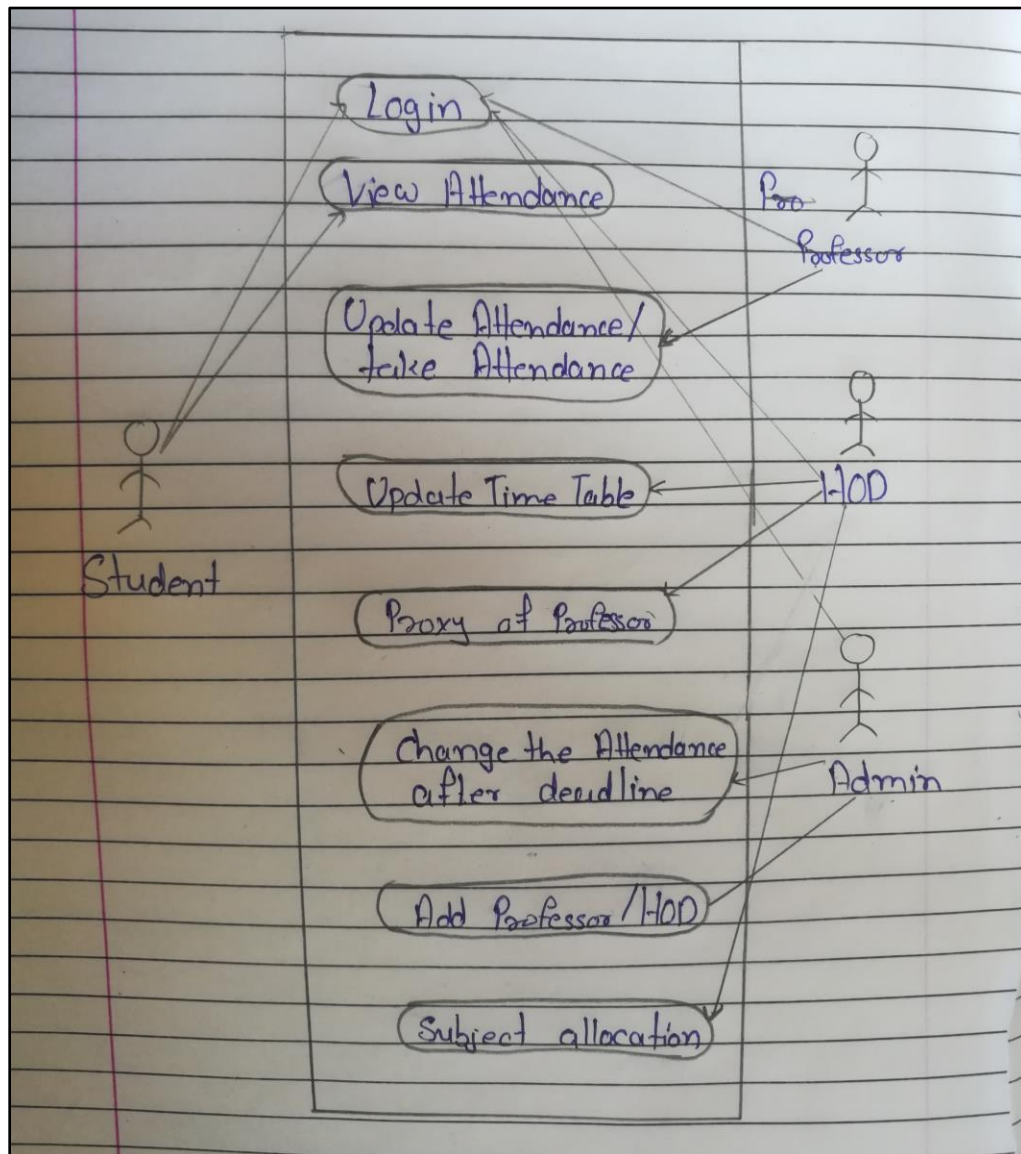 Login
View Attendance
Pro
Professor
Update Attendance/
take Attendance
Update Time Table
HOD
Student
Proxy of Professor
Change the Attendance
after deadline
Admin
Add Professor/HOD
Subject allocation